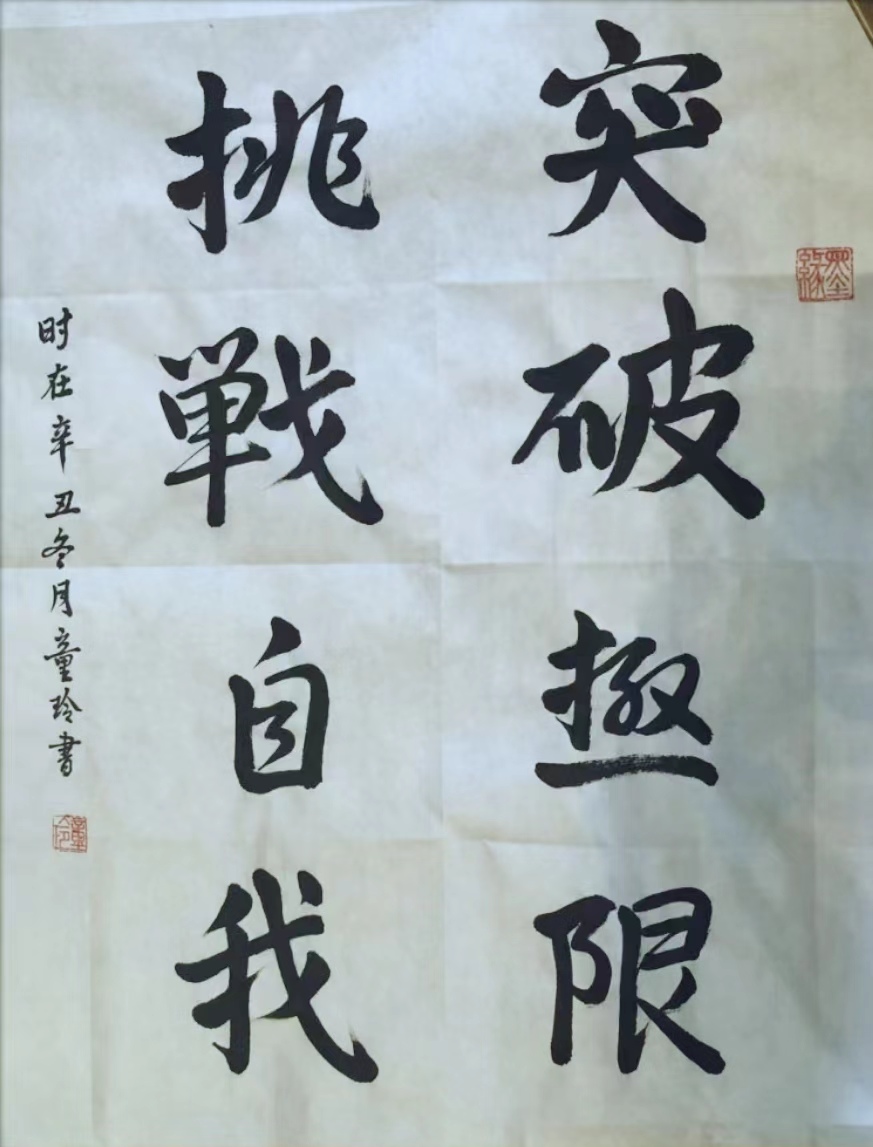 突破極限
挑戦自我
时在辛丑冬月童玲書